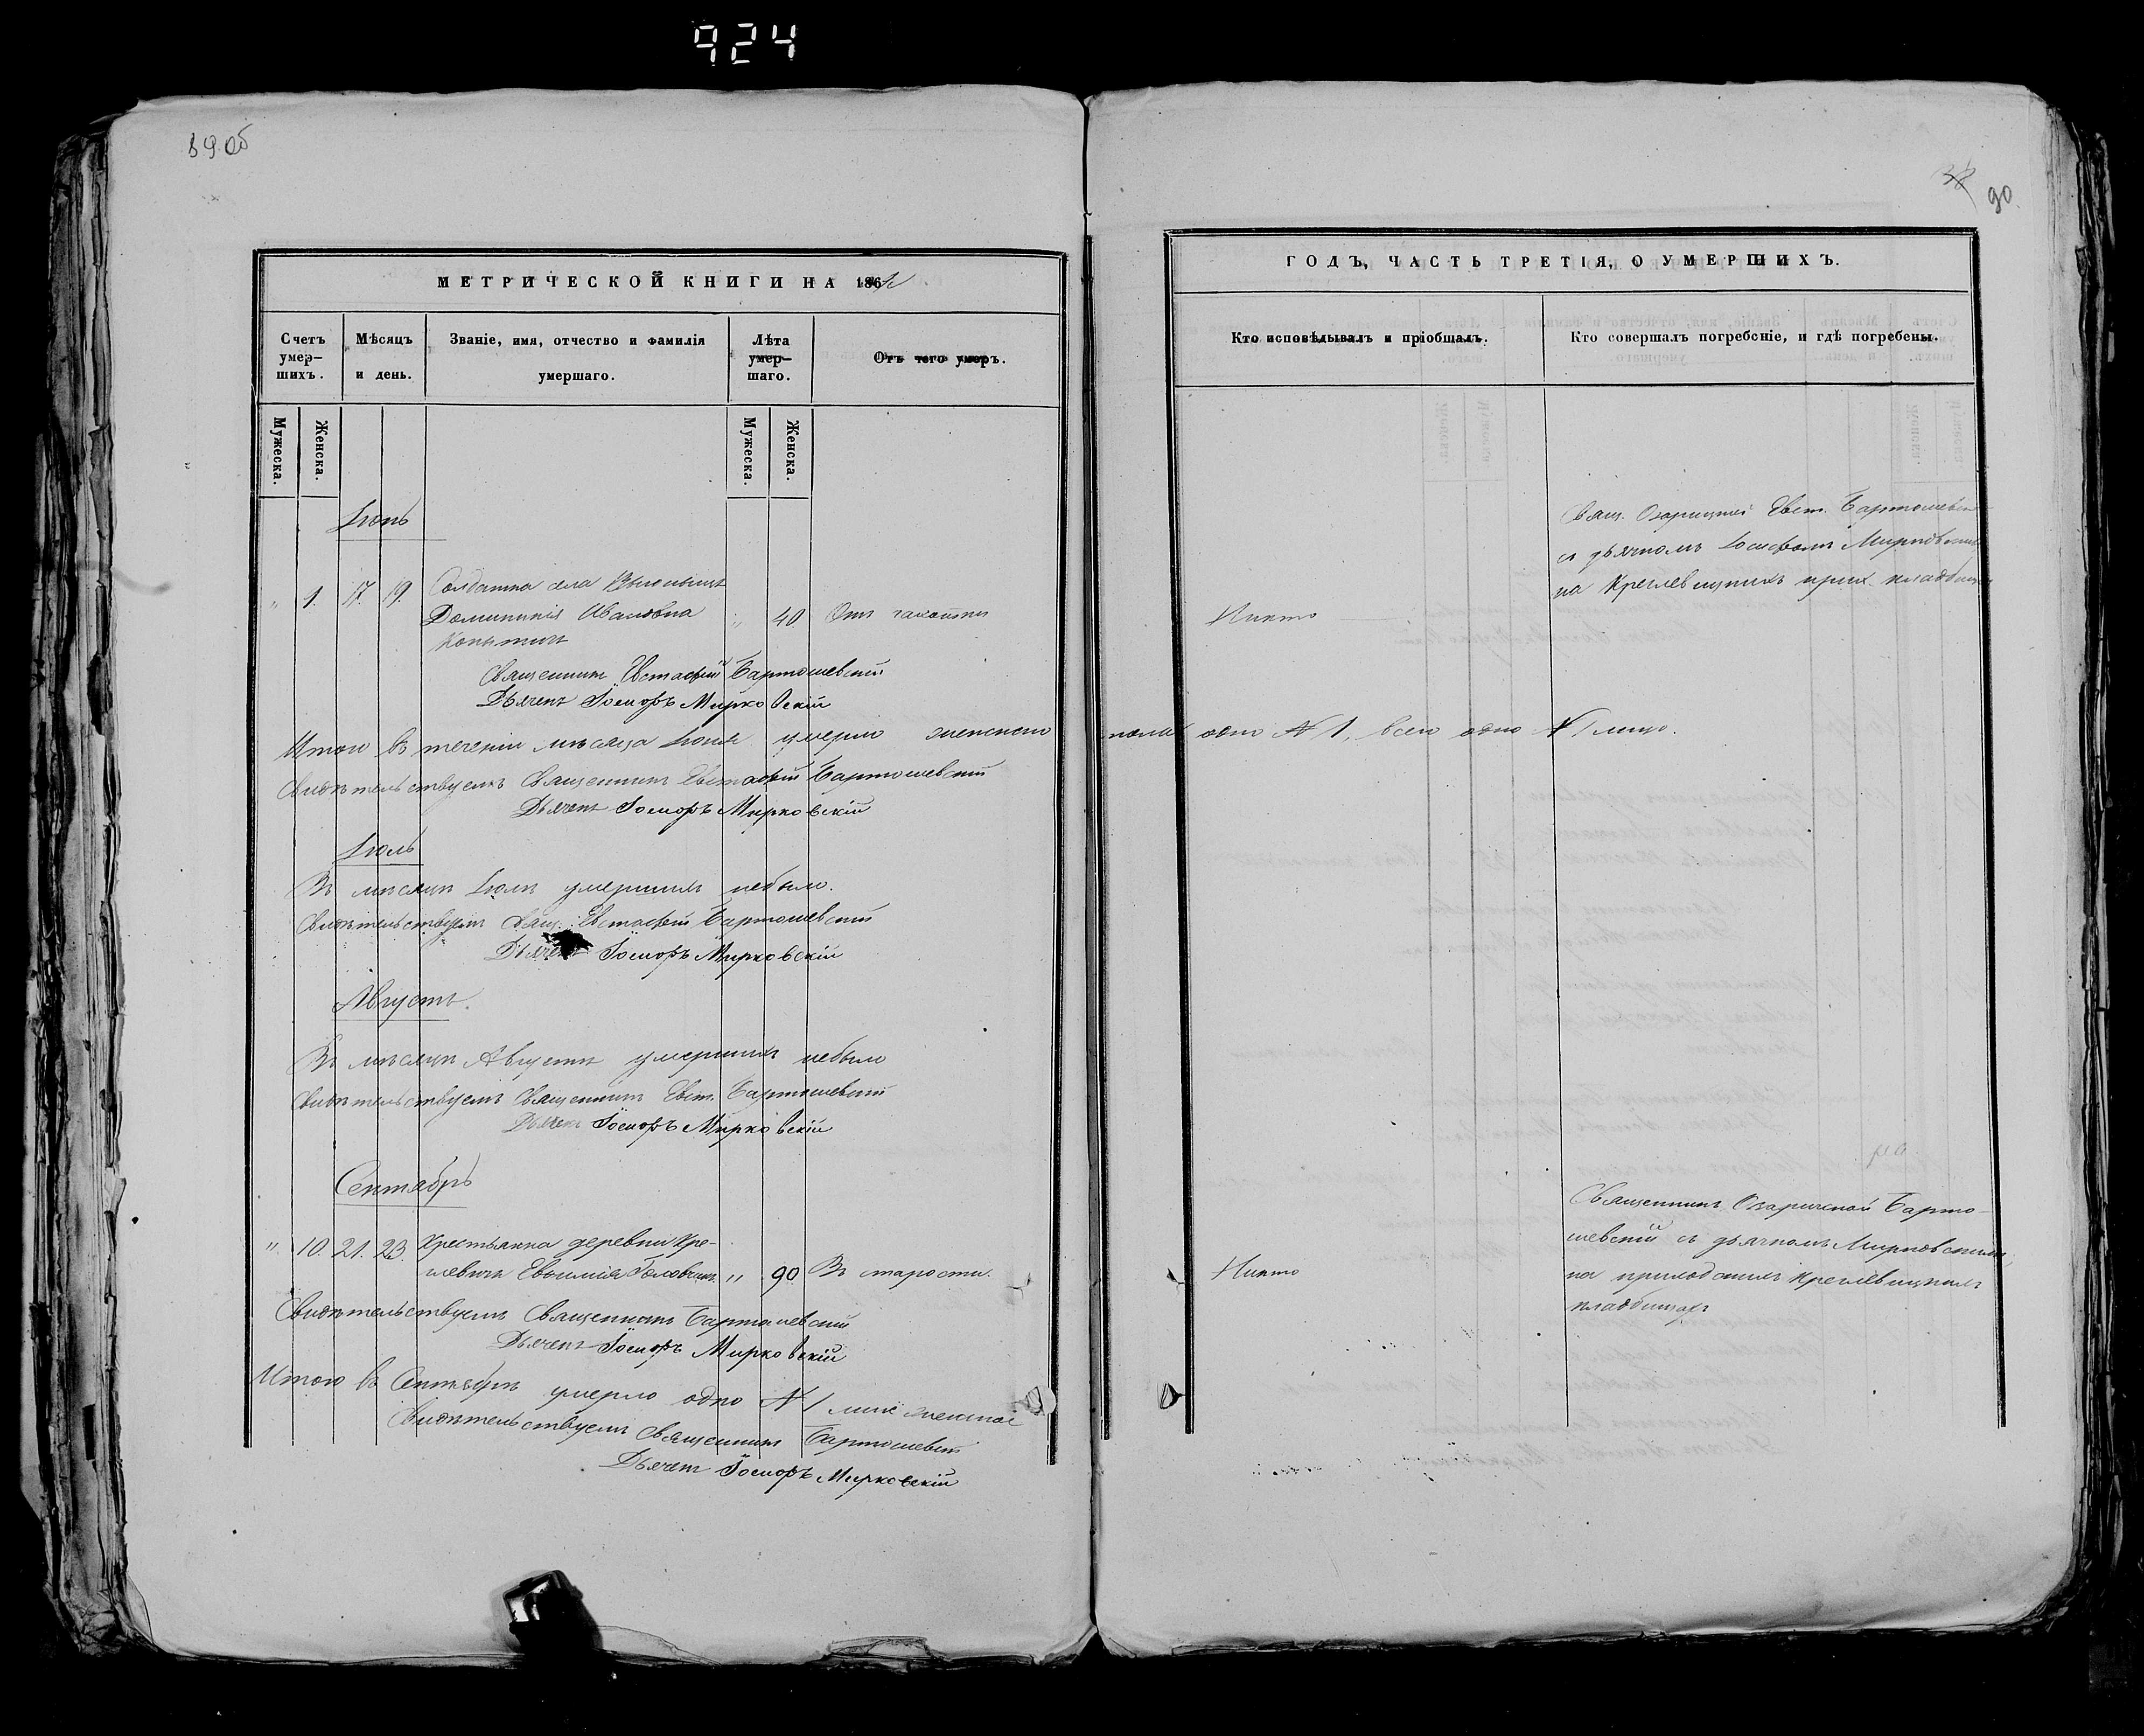 924
89 об
90
МЕТРИЧЕСКОЙ КНИГИ НА 186
Счетъ умер-шихъ.
Мѣсяцъ и день.
Званіе, имя, отчество и фамилія умершаго.
Лѣта умер-шаго.
Отъ чего умеръ.
Мужеска.
Женска.
Мужеска.
Женска.
Іюнь
" 1. 17. 19. Солдатка села
Доминикія Ивановна " 40. Отъ чахотки
Священникъ Евстафій Бартошевскій
Дьячекъ Іосифъ Мирковскій
Итого въ теченіи мѣсяца Іюня умерло женскаго пола одно № 1, всего одно № 1 лицо.
Свидѣтельствуемъ Священникъ Евстафій Бартошевскій
Дьячекъ Іосифъ Мирковскій
Іюль
Въ мѣсяцѣ Іюлѣ умершихъ небыло.
Свидѣтельствуемъ Свящ. Евстафій Бартошевскій
Дьячекъ Іосифъ Мирковскій
Августъ.
Въ мѣсяцѣ Августѣ умершихъ небыло
Свидѣтельствуемъ Священникъ Евст. Бартошевскій
Дьячекъ Іосифъ Мирковскій
Сентябрь
" 10. 21. 23. Крестьянка деревни Кре-
глевичъ Евфимія " 90. Въ старости.
Свидѣтельствуемъ Священникъ Бартошевскій
Дьячекъ Іосифъ Мирковскій
Итого въ Сентябрѣ умерло одно № 1 лице женскаго
Свидѣтельствуемъ Священникъ Бартошевскій
Дьячекъ Іосифъ Мирковскій
ГОДЪ, ЧАСТЬ ТРЕТІЯ, О УМЕРШИХЪ.
Кто исповѣдывалъ и пріобщалъ.
Кто совершалъ погребеніе, и гдѣ погребены.
Свящ. Озарицкой Евст. Бартошевскій
съ дьячкомъ Іосифомъ
на приход. кладбищ
Никто
Священникъ Озарицкой Барто-
шевскій съ дьячкомъ Мирковскимъ
на приходскихъ
кладбищахъ
Никто